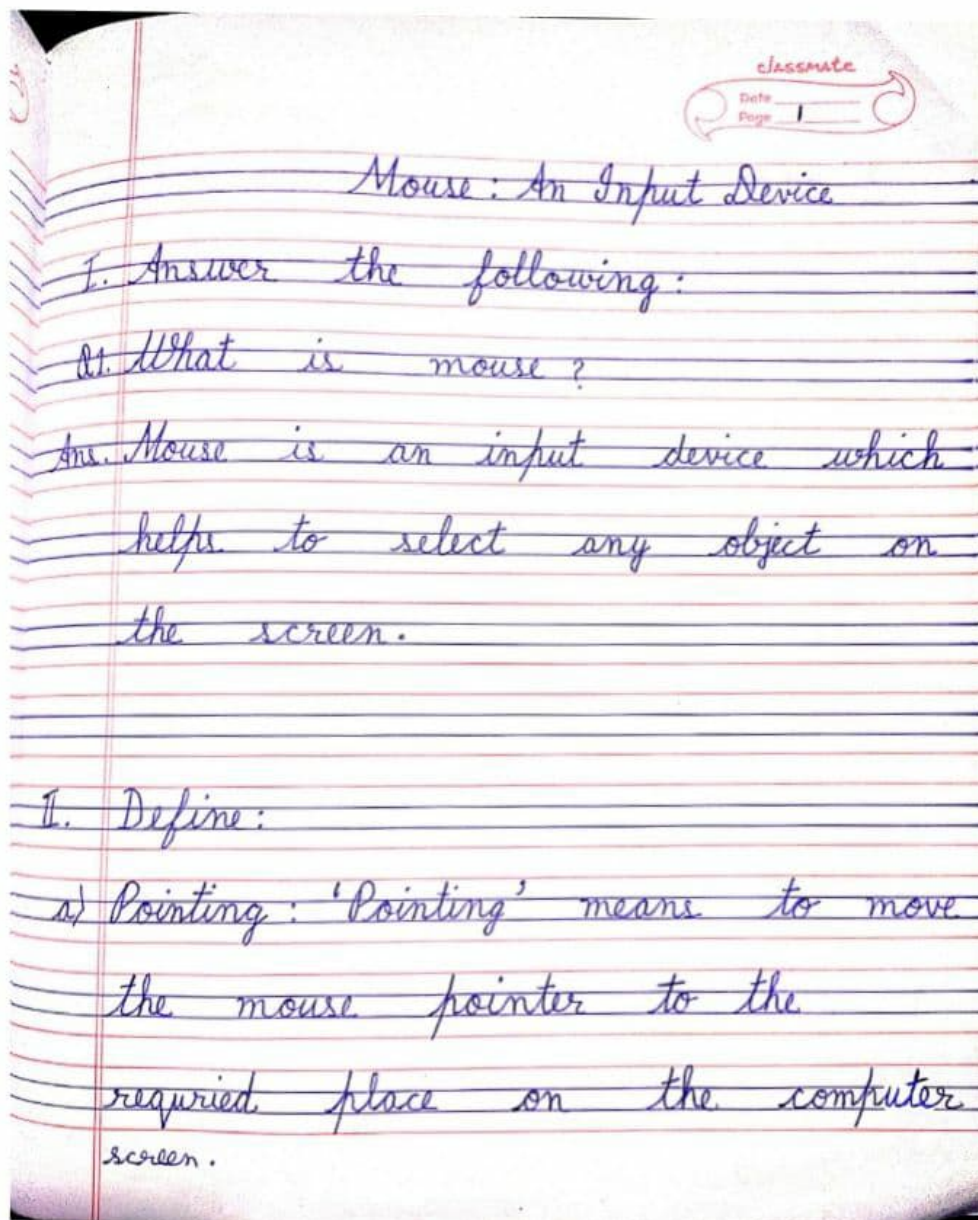 classmate
Date
Page 1
Mouse : An Input Device
I. Answer the following :
Q1. What is mouse ?
Ans. Mouse is an input device which
helps to select any object on
the screen.
II. Define :
a) Pointing : 'Pointing' means to move
the mouse pointer to the
requried place on the computer
screen.